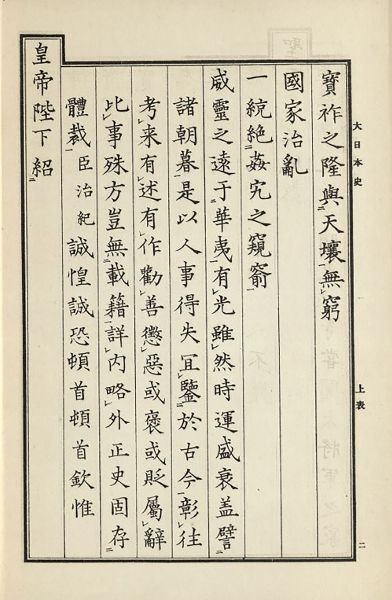 大日本史 上表 二
寶祚之隆與天壤無窮
國家治亂
一統絶姦宄之窺窬
威靈之遠于華夷有光雖然時運盛衰盖譬
諸朝暮是以人事得失冝鑒於古今彰往
考来有述有作勸善懲惡或襃或貶屬辭
比事殊方豈無載籍詳内略外正史固存
體裁臣治紀誠惶誠恐頓首頓首欽惟
皇帝陛下紹